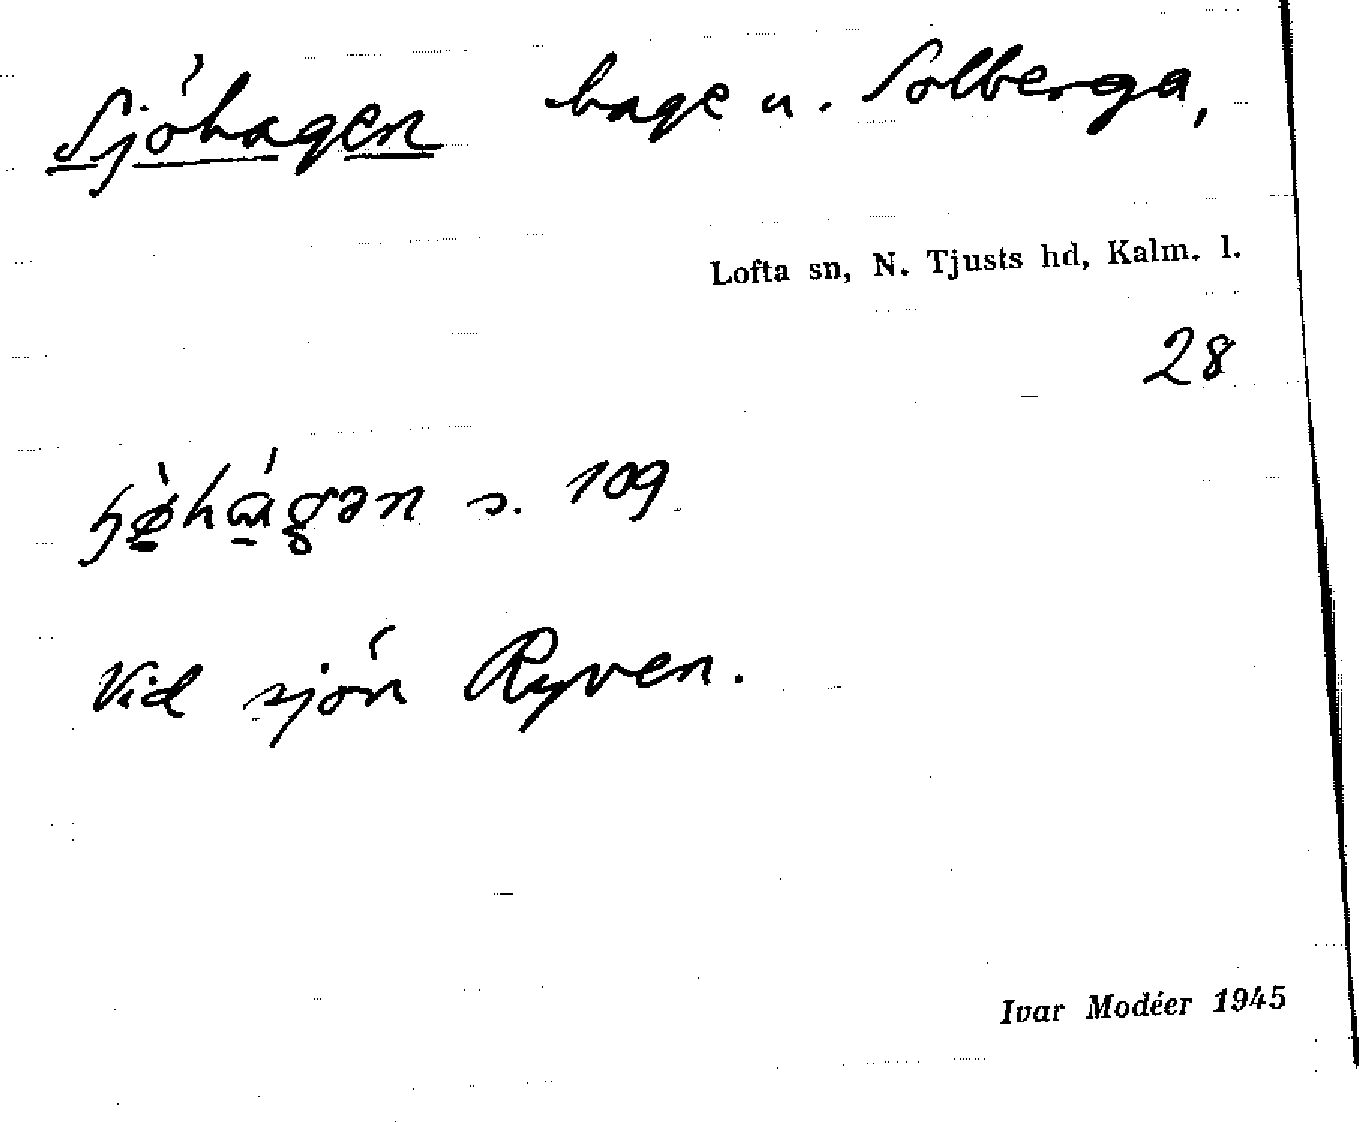 Sjöhagen hage u. Solberga,
Lofta sn, N. Tjusts hd, Kalm. l.
28
s. 109
Vid sjön Ryven.
Ivar Modéer 1945